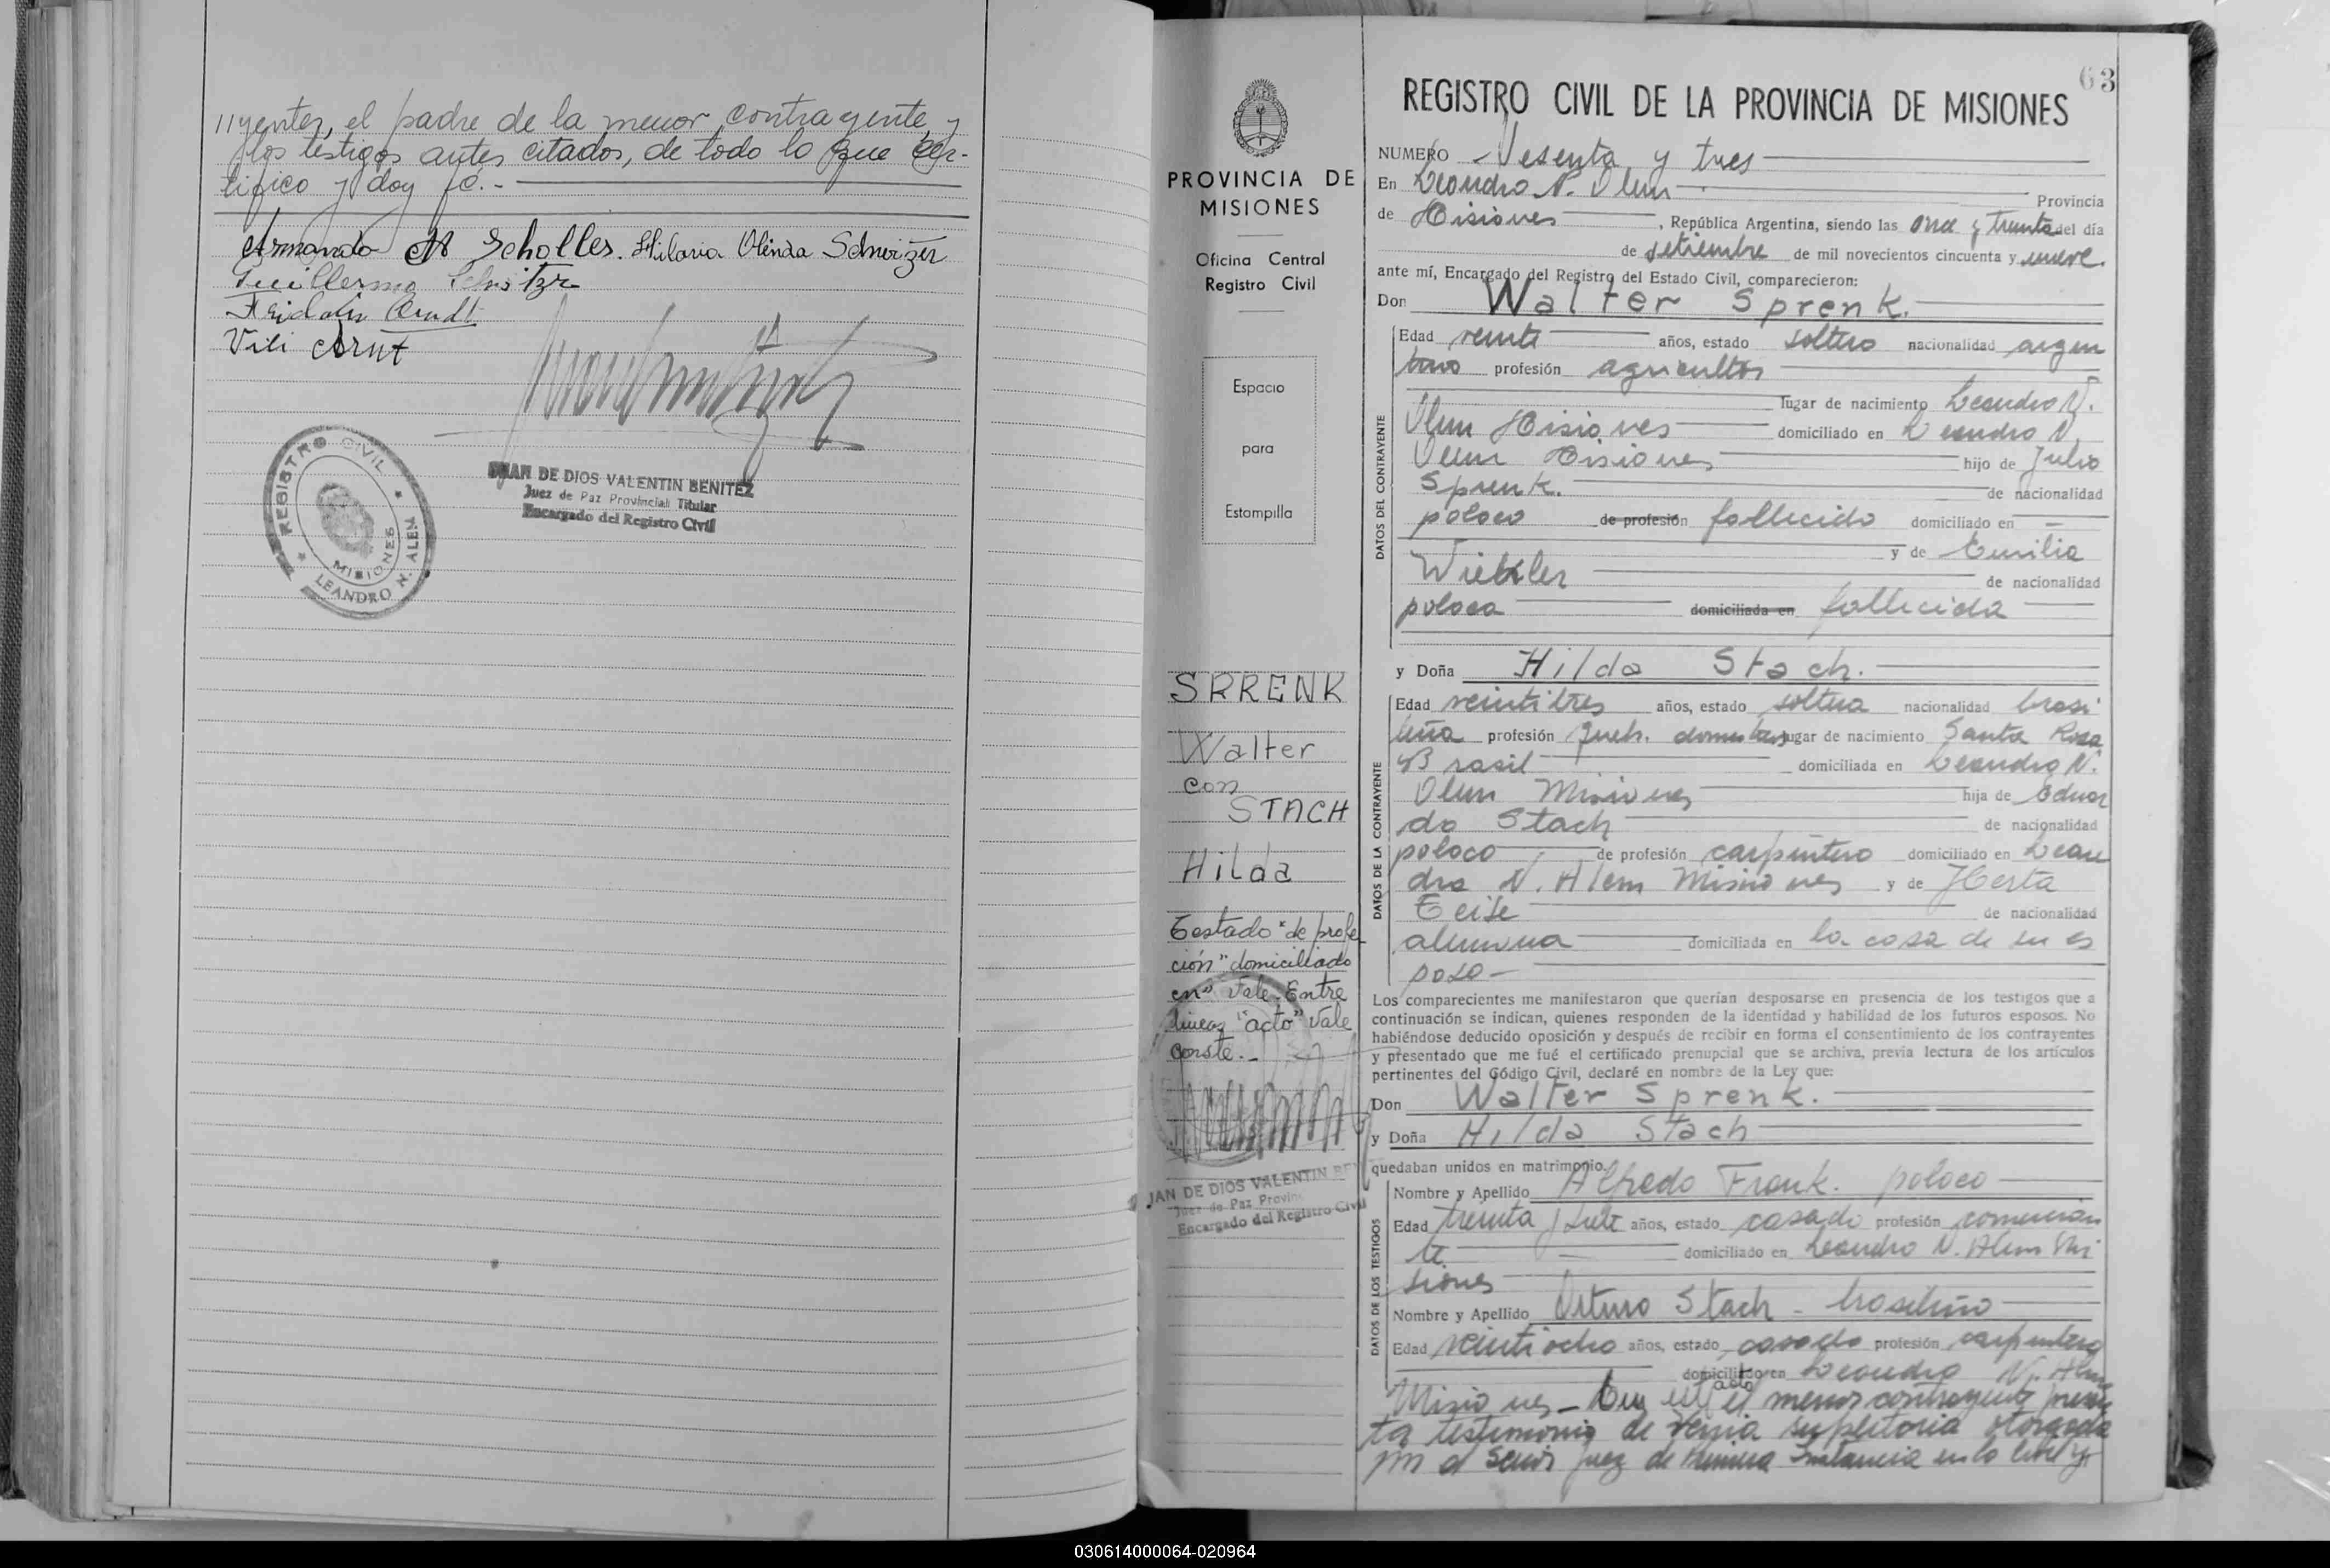 //yentes, el padre de la menor contrayente, y
los testigos antes citados, de todo lo que cer-
tifico y doy fé.-
Armando A Scholles. Hilaria Olinda Schweizer
Guillermo
Fridolin Arndt
Vili Arnt
REGISTRO CIVIL
MISIONES
LEANDRO N. ALEM
JUAN DE DIOS VALENTIN BENITEZ
Juez de Paz Provincial Titular
Encargado del Registro Civil
PROVINCIA DE
MISIONES
Oficina Central
Registro Civil
Espacio
para
Estampilla
SPRENK
Walter
con
STACH
Hilda
Testado "de profe
ción" domiciliado
en" Vale-Entre
lineas "acto" Vale
conste.-
JUAN DE DIOS VALENTIN BEN
Juez de Paz Provin
Encargado del Registro Civil
63
REGISTRO CIVIL DE LA PROVINCIA DE MISIONES
NUMERO Sesenta y tres
En Leandro N. Alem Provincia
de Misiones, República Argentina, siendo las once y treinta del día
de setiembre de mil novecientos cincuenta y nueve.
ante mí, Encargado del Registro del Estado Civil, comparecieron:
Don Walter Sprenk.
DATOS DEL CONTRAYENTE
Edad veinte años, estado soltero nacionalidad argen
tino profesión agricultor
lugar de nacimiento Leandro N.
Alem Misiones domiciliado en Leandro N.
Alem Misiones hijo de Julio
Sprenk. de nacionalidad
polaco de profesión fallecido domiciliado en —
y de Emilia
de nacionalidad
polaca domiciliada en fallecida
y Doña Hilda Stach.
DATOS DE LA CONTRAYENTE
Edad veintitres años, estado soltera nacionalidad brasi
leña profesión queh. domesticos lugar de nacimiento Santa Rosa
Brasil domiciliada en Leandro N.
Alem Misiones hija de Eduar
do Stach de nacionalidad
polaco de profesión carpintero domiciliado en Lean
dro N. Alem Misiones y de Herta
de nacionalidad
alemana domiciliada en la casa de su es
poso-
Los comparecientes me manifestaron que querían desposarse en presencia de los testigos que a
continuación se indican, quienes responden de la identidad y habilidad de los futuros esposos. No
habiéndose deducido oposición y después de recibir en forma el consentimiento de los contrayentes
y presentado que me fué el certificado prenupcial que se archiva, previa lectura de los artículos
pertinentes del Código Civil, declaré en nombre de la Ley que:
Don Walter Sprenk.
y Doña Hilda Stach
quedaban unidos en matrimonio.
DATOS DE LOS TESTIGOS
Nombre y Apellido Alfredo Frank. polaco
Edad treinta y siete años, estado casado profesión comercian
te domiciliado en Leandro N. Alem Mi
siones
Nombre y Apellido Arturo Stach - brasileño
Edad veintiocho años, estado casado profesión carpintero
domiciliado en Leandro N. Alem
acto
Misiones - En este el menor contrayente presen
ta testimonio de venia supletoria otorgada
por el Señor Juez de Primera Instancia en lo Civil y
030614000064-020964